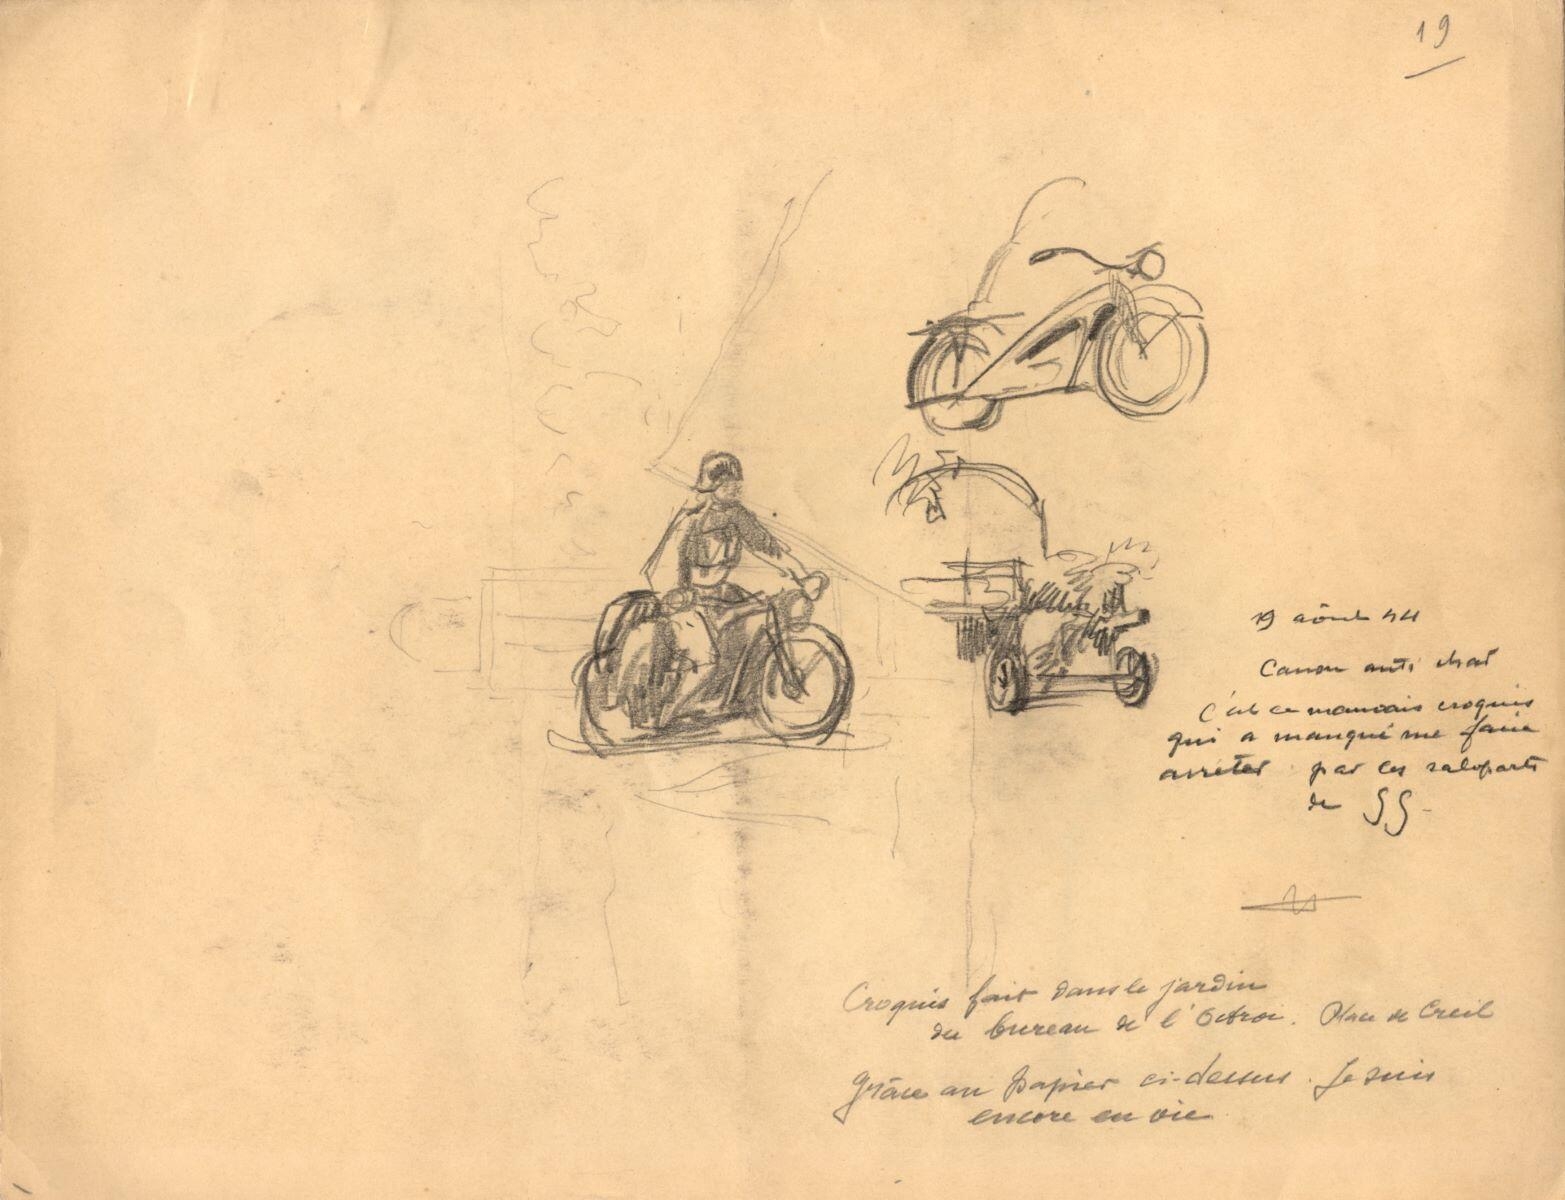 19
19 août 44
Canon anti char
C'est ce mauvais croquis
qui a manqué me faire
arrêter par ces saloparts
de SS-
Croquis fait dans le jardin
du bureau de l'Octroi. Place de Creil
Grâce au papier ci-dessus. Je suis
encore en vie